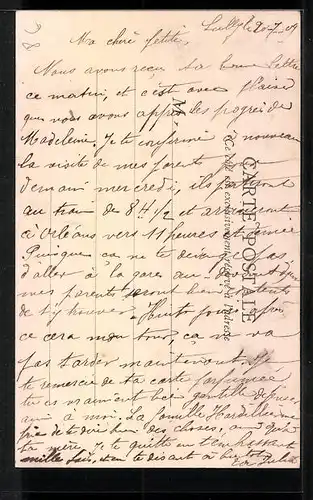 Ma chère petite,
Nous avons reçu ta lettre
ce matin, et c'est avec plaisir
que nous avons appris les progrès de
Madeleine. Je te confirme à nouveau
la visite de mes parents
Demain mercredi, ils
au train de 8 H 1/2 et
à Orléans vers 11 heures et
Puisque ça ne te pas
d'aller à la gare au
mes parents seront bien contents
de t'y trouver. Huit jours après
ce sera mon tour, ça ne va
pas tarder maintenant. Je
te remercie de ta carte
tu es vraiment bien gentille de
ainsi à moi. La famille
de te dire bien des choses, ainsi qu'à
ta mère. Je te quitte en t'embrassant
mille fois, et en te disant à bientôt
CARTE POSTALE
Ce côté est exclusivement réservé à l'adresse